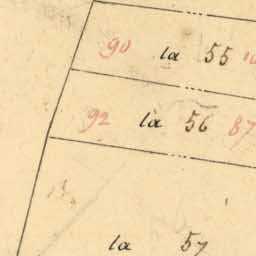 90 la 55 10
92 la 56 87
la 57